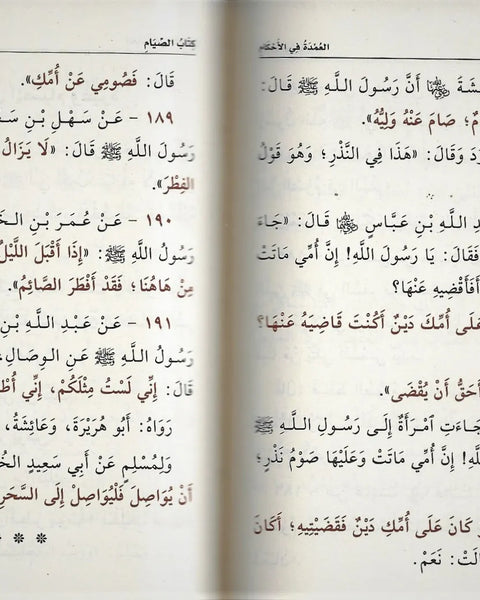 العُمْدَةُ فِي الأَحْكَامِ
شَةَ ﵂ أَنَّ رَسُولَ اللَّهِ ﷺ قَالَ:
مٌ؛ صَامَ عَنْهُ وَلِيُّهُ».
دَ وَقَالَ: «هَذَا فِي النَّذْرِ؛ وَهُوَ قَوْلُ
دِ اللَّهِ بْنِ عَبَّاسٍ ﵄ قَالَ: «جَاءَ
فَقَالَ: يَا رَسُولَ اللَّهِ! إِنَّ أُمِّي مَاتَتْ
أَفَأَقْضِيهِ عَنْهَا؟
عَلَى أُمِّكَ دَيْنٌ أَكُنْتَ قَاضِيَهُ عَنْهَا؟
أَحَقُّ أَنْ يُقْضَى».
جَاءَتِ امْرَأَةٌ إِلَى رَسُولِ اللَّهِ ﷺ
للَّهِ! إِنَّ أُمِّي مَاتَتْ وَعَلَيْهَا صَوْمُ نَذْرٍ؛
كَانَ عَلَى أُمِّكِ دَيْنٌ فَقَضَيْتِيهِ؛ أَكَانَ
الَتْ: نَعَمْ.
كِتَابُ الصِّيَامِ
قَالَ: فَصُومِي عَنْ أُمِّكِ».
١٨٩ - عَنْ سَهْلِ بْنِ سَعْ
رَسُولَ اللَّهِ ﷺ قَالَ: «لَا يَزَالُ
الفِطْرَ».
١٩٠ - عَنْ عُمَرَ بْنِ الخَ
رَسُولُ اللَّهِ ﷺ: «إِذَا أَقْبَلَ اللَّيْلُ
مِنْ هَاهُنَا؛ فَقَدْ أَفْطَرَ الصَّائِمُ».
١٩١ - عَنْ عَبْدِ اللَّهِ بْنِ
رَسُولُ اللَّهِ ﷺ عَنِ الوِصَالِ،
قَالَ: إِنِّي لَسْتُ مِثْلَكُمْ، إِنِّي أُطْ
رَوَاهُ: أَبُو هُرَيْرَةَ، وَعَائِشَةُ،
وَلِمُسْلِمٍ عَنْ أَبِي سَعِيدٍ الخُ
أَنْ يُوَاصِلَ فَلْيُوَاصِلْ إِلَى السَّحَرِ
* * *